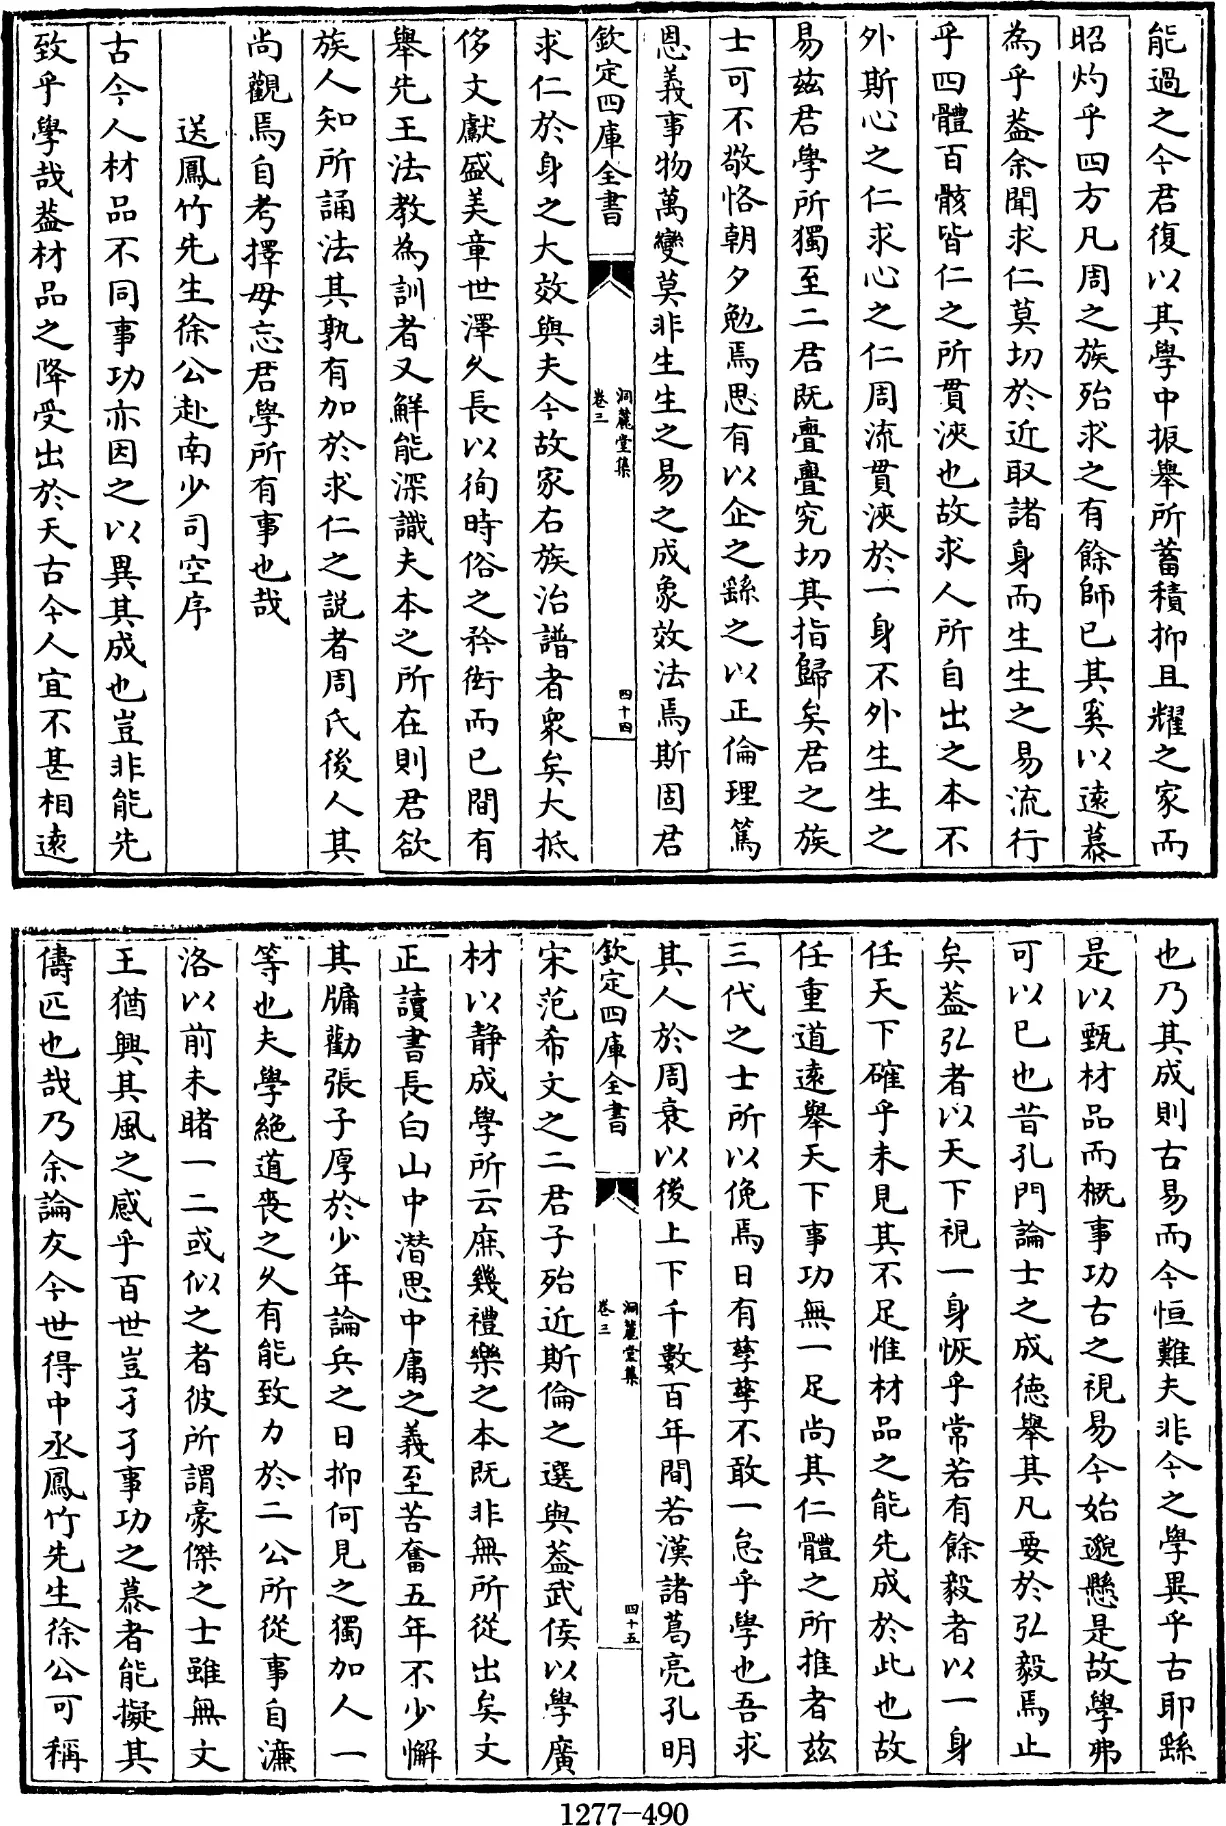 能過之今君復以其學中振舉所蓄積抑且耀之家而
昭灼乎四方凡周之族殆求之有餘師已其奚以遠慕
為乎葢余聞求仁莫切於近取諸身而生生之易流行
乎四體百骸皆仁之所貫浹也故求人所自出之本不
外斯心之仁求心之仁周流貫浹於一身不外生生之
易兹君學所獨至二君既亹亹究切其指歸矣君之族
士可不敬恪朝夕勉焉思有以企之繇之以正倫理篤
恩義事物萬變莫非生生之易之成象效法焉斯固君
欽定四庫全書
洞麓堂集
卷三
四十四
求仁於身之大效與夫今故家右族治譜者衆矣大抵
侈文獻盛美章世澤久長以徇時俗之矜衒而已間有
舉先王法教為訓者又鮮能深識夫本之所在則君欲
族人知所誦法其孰有加於求仁之説者周氏後人其
尚觀焉自考擇毋忘君學所有事也哉
送鳳竹先生徐公赴南少司空序
古今人材品不同事功亦因之以異其成也豈非能先
致乎學哉葢材品之降受出於天古今人宜不甚相遠
也乃其成則古易而今恒難夫非今之學異乎古耶繇
是以甄材品而概事功古之視易今始邈懸是故學弗
可以已也昔孔門論士之成徳舉其凡要於弘毅焉止
矣葢弘者以天下視一身恢乎常若有餘毅者以一身
任天下確乎未見其不足惟材品之能先成於此也故
任重道遠舉天下事功無一足尚其仁體之所推者兹
三代之士所以俛焉日有孳孳不敢一怠乎學也吾求
其人於周衰以後上下千數百年間若漢諸葛亮孔明
欽定四庫全書
洞麓堂集
卷三
四十五
宋范希文之二君子殆近斯倫之選與葢武侯以學廣
材以靜成學所云庶幾禮樂之本既非無所從出矣文
正讀書長白山中潜思中庸之義至苦奮五年不少懈
其牖勸張子厚於少年論兵之日抑何見之獨加人一
等也夫學絶道喪之久有能致力於二公所從事自濂
洛以前未睹一二或似之者彼所謂豪傑之士雖無文
王猶興其風之感乎百世豈孑孑事功之慕者能擬其
儔匹也哉乃余論友今世得中丞鳳竹先生徐公可稱
1277-490